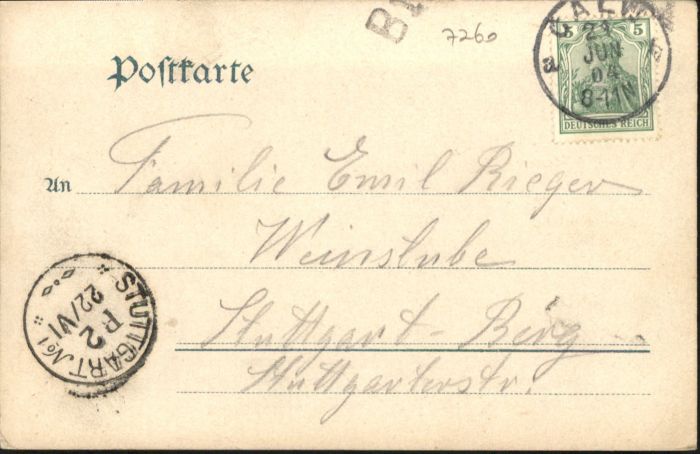 7260
Postkarte
CALW
21
JUN
04
8-11N
a
5 5
DEUTSCHES REICH
An Familie Emil Rieger
Weinstube
Stuttgart-Berg
Stuttgarterstr.
STUTTGART No 1
P 2
22/VI